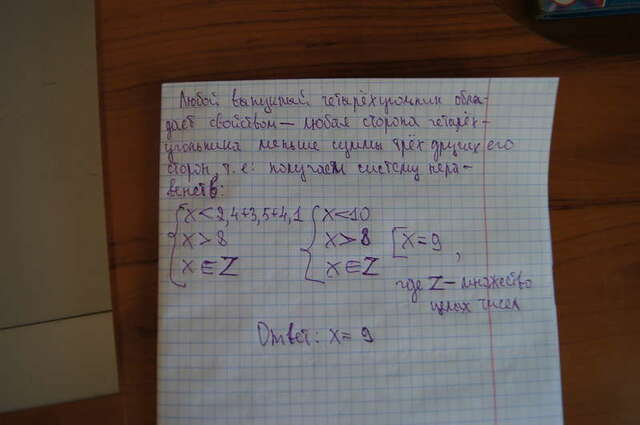 Любой выпуклый четырёхугольник обла-
дает свойством — любая сторона четырёх-
угольника меньше суммы трёх других его
сторон, т.е: получаем систему нера-
венств:
{ x < 2,4+3,5+4,1 { x < 10
{ x > 8 { x > 8 [ x = 9 ,
{ x ∈ Z { x ∈ Z где Z — множество
целых чисел
Ответ: x = 9